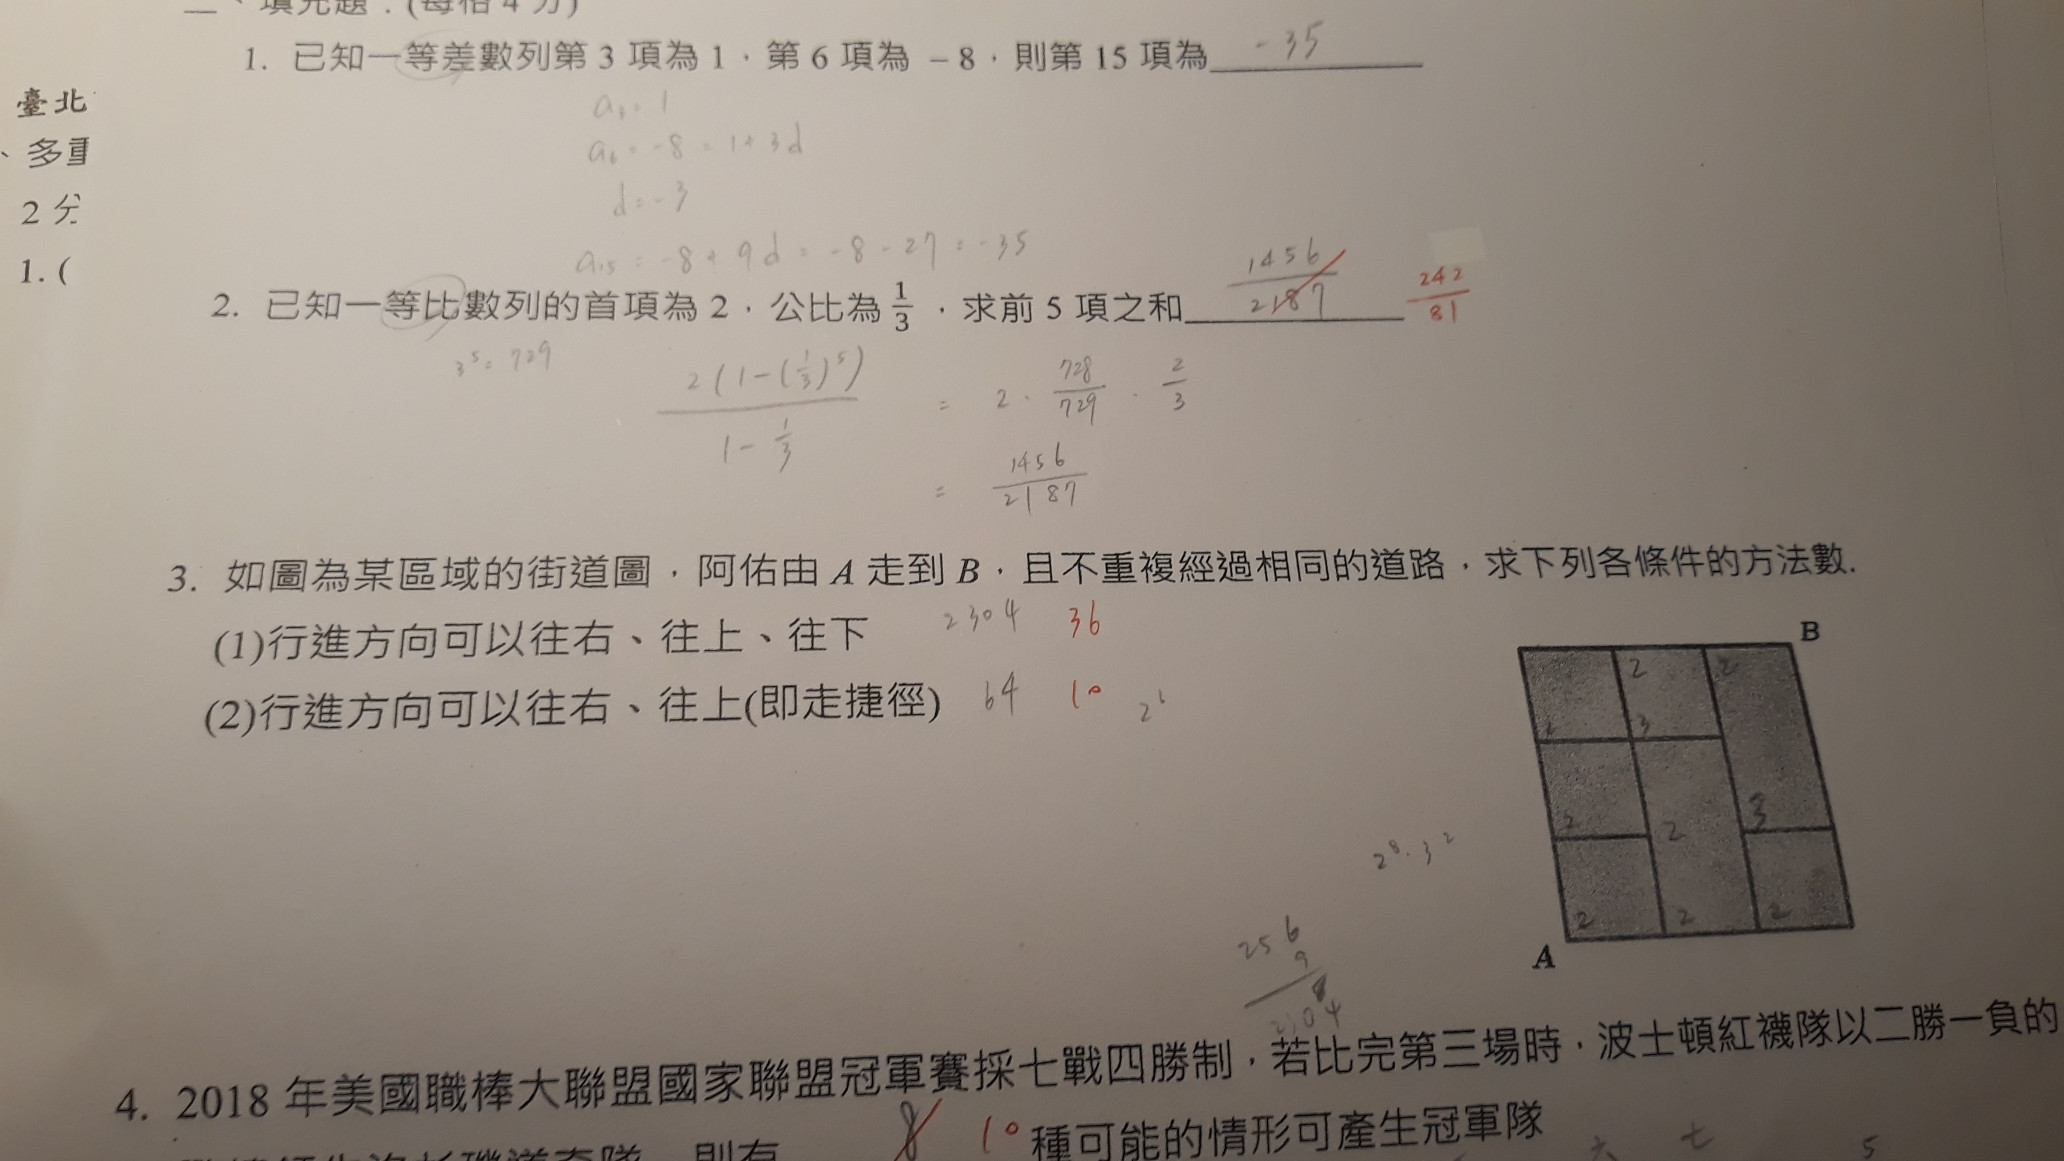 二、填充題：(每格4分)
1. 已知一等差數列第 3 項為 1，第 6 項為 －8，則第 15 項為 -35
臺北
、多重
2 分
1. (
a₃ = 1
a₆ = -8 = 1 + 3d
d = -3
a₁₅ = -8 + 9d = -8 - 27 = -35
2. 已知一等比數列的首項為 2，公比為 1/3，求前 5 項之和 1456/2187 242/81
3⁵ = 729
2(1-(1/3)⁵) / 1-1/3 = 2 · 728/729 · 2/3
= 1456/2187
3. 如圖為某區域的街道圖，阿佑由 A 走到 B，且不重複經過相同的道路，求下列各條件的方法數.
(1)行進方向可以往右、往上、往下 2304 36
(2)行進方向可以往右、往上(即走捷徑) 64 10 2⁶
B
2 2
3
2 2 3
2 2 2
A
2⁸·3²
256
9
2304
4. 2018 年美國職棒大聯盟國家聯盟冠軍賽採七戰四勝制，若比完第三場時，波士頓紅襪隊以二勝一負的
則有 8 10 種可能的情形可產生冠軍隊
六 七 5